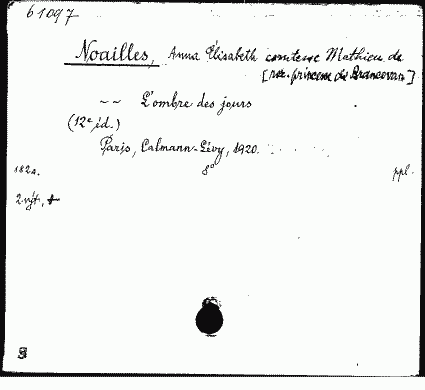 61097
Noailles, Anna Élisabeth comtesse Mathieu de
[née princesse de Brancovan]
-- L'ombre des jours
(12e éd.)
Paris, Calmann-Lévy, 1920.
182 s. 8° ppl.
2 výt.